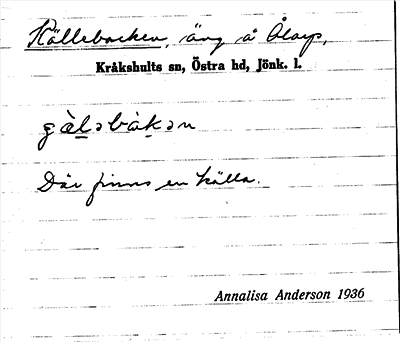 Källebacken, äng å Ålarp,
Kråkshults sn, Östra hd, Jönk. l.
gàl̲əbàk̲ən
Där finns en källa.
Annalisa Anderson 1936